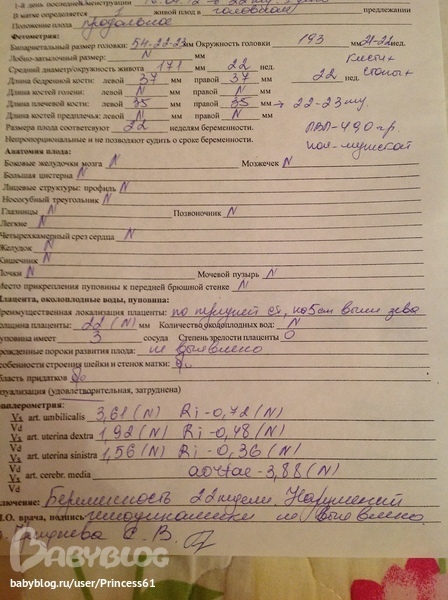 1-й день последней менструации 16.04.12
В матке определяется 1 живой плод в головном предлежании
Положение плода продольное
Фетометрия:
Бипариетальный размер головки: 54-22-23 мм Окружность головки 193 мм 21-22 нед.
Лобно-затылочный размер: N мм
Средний диаметр/окружность живота 171 мм 22 нед.
Длина бедренной кости: левой 37 мм правой 37 мм 22 нед.
Длина костей голени: левой N мм правой N мм
Длина плечевой кости: левой 35 мм правой 35 мм → 22-23 нед.
Длина костей предплечья: левой N мм правой N мм
Размера плода соответсвуют 22 неделям беременности.
ПВП-490 гр.
Непропорциональные и не позволяют судить о сроке беременности.
пол-мужской
Анатомия плода:
Боковые желудочки мозга N Мозжечек N
Большая цистерна N
Лицевые структуры: профиль N
Носогубный треугольник N
Глазницы N Позвоночник N
Легкие N
Четырехкамерный срез сердца N
Желудок N
Кишечник N
Почки N Мочевой пузырь N
Место прикрепления пуповины к передней брюшной стенке N
Плацента, околоплодные воды, пуповина:
Преимущественная локализация плаценты: по передней ст, на 5см выше зева
Толщина плаценты: 22 (N) мм Количество околоплодных вод: N
Пуповина имеет 3 сосуда Степень зрелости плаценты 0
Врожденные пороки развития плода: не выявлено
Особенности строения шейки и стенок матки:
Область придатков
Визуализация (удовлетворительная, затруднена)
Допплерометрия:
Vs art. umbilicalis 3,61 (N) Ri-0,72 (N)
Vd
Vs art. uterina dextra 1,92 (N) Ri-0,48 (N)
Vd
Vs art. uterina sinistra 1,56 (N) Ri-0,36 (N)
Vd
Vs art. cerebr. media 3,88 (N)
Vd
Заключение: Беременность 22 недели. Нарушений
Ф.И.О. врача, подпись гемодинамики не выявлено
С. В.
BABYBLOG
babyblog.ru/user/Princess61